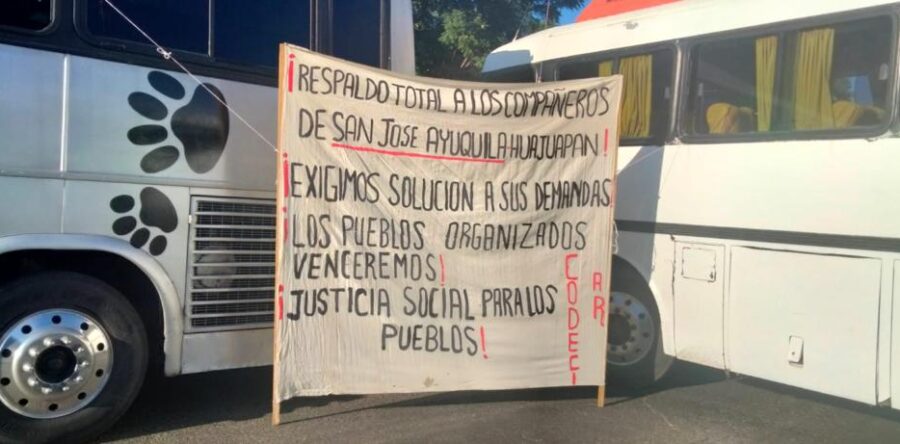 ¡RESPALDO TOTAL A LOS COMPAÑEROS
DE SAN JOSE AYUQUILA-HUAJUAPAN!
¡EXIGIMOS SOLUCION A SUS DEMANDAS
¡LOS PUEBLOS ORGANIZADOS
VENCEREMOS!
¡JUSTICIA SOCIAL PARA LOS
PUEBLOS!
CODECI
AR